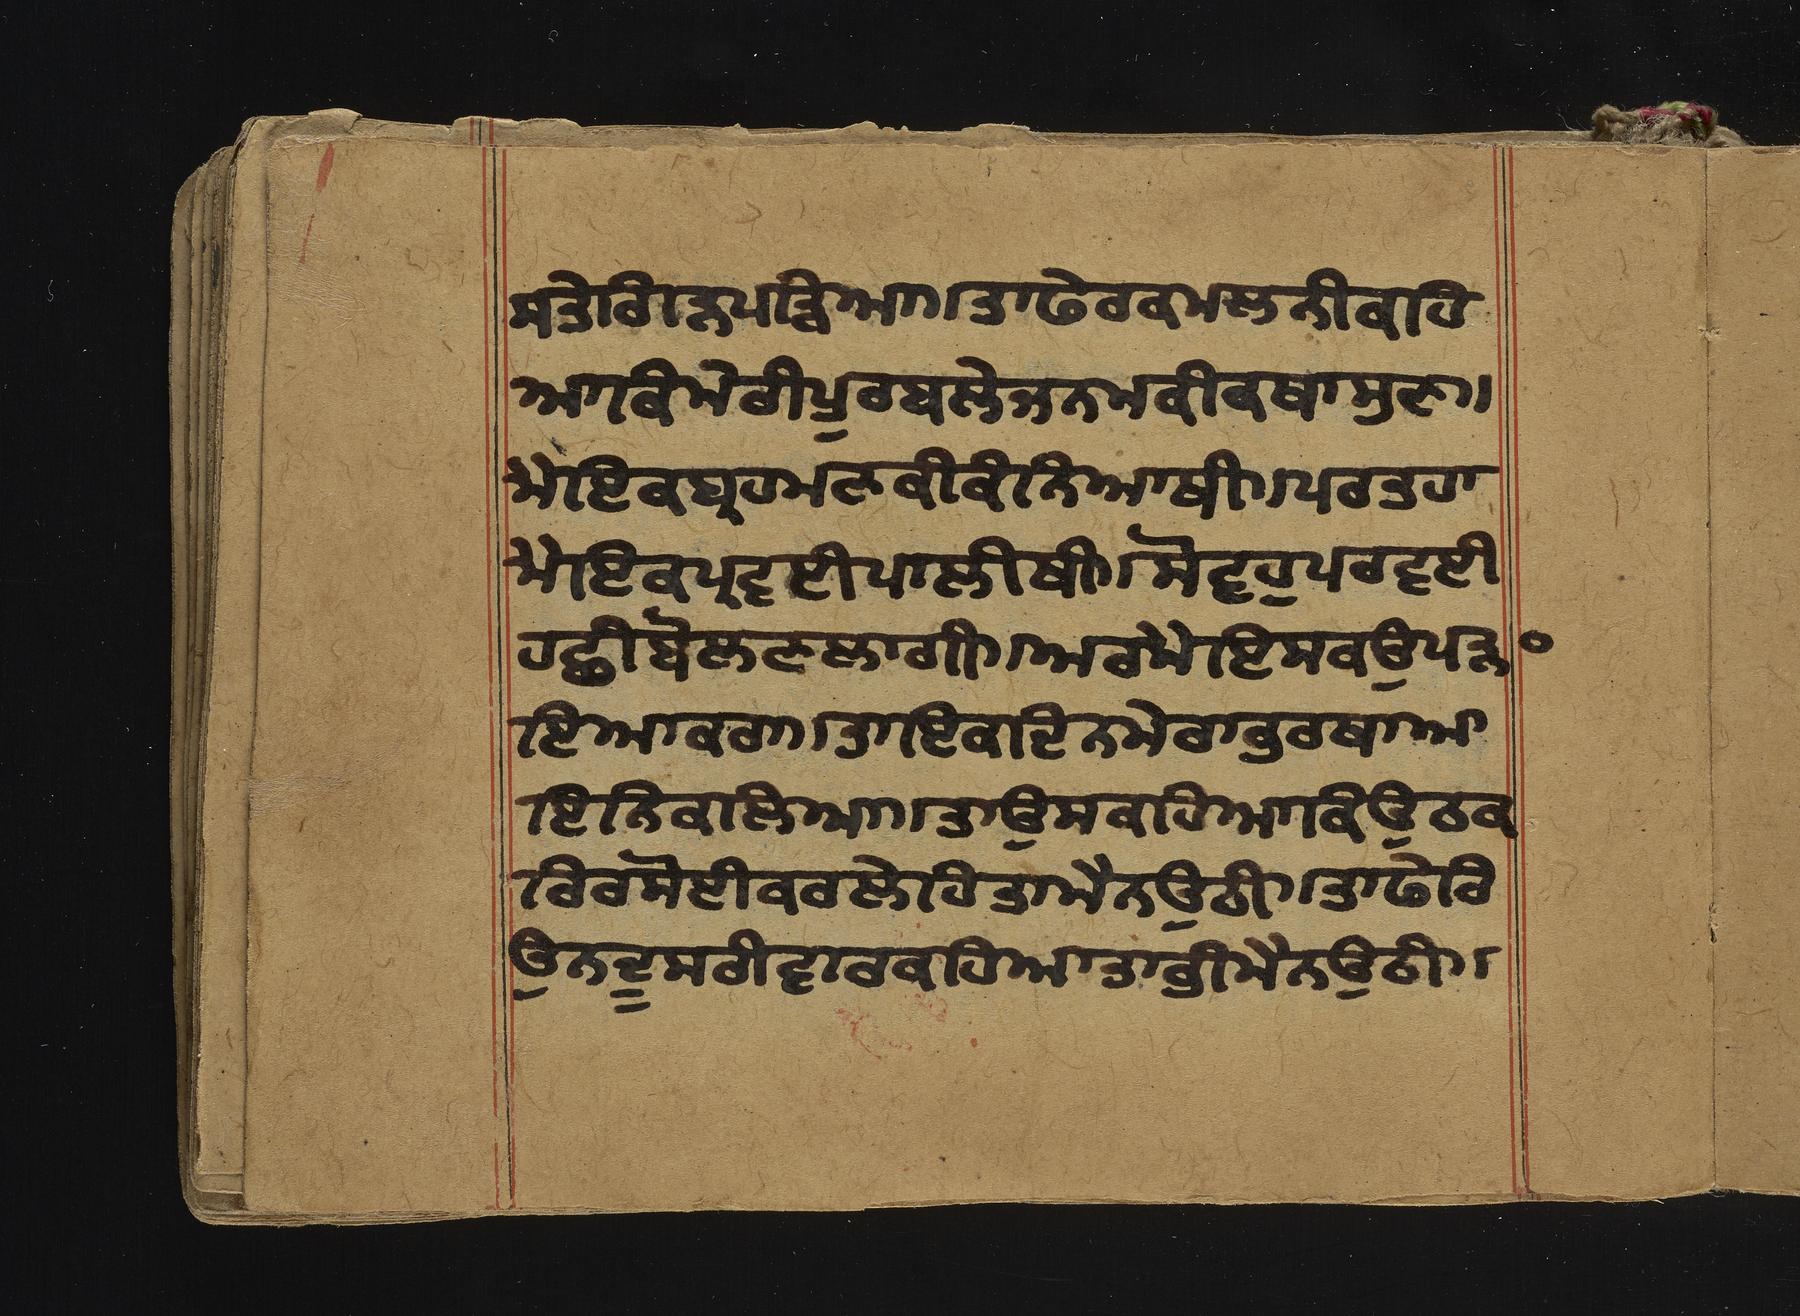 ਸਤੇਰਿ ੜਪਕਿਆ॥ ਤਾਫੇਰਕਮਲਨੀਕਹਿ
ਆਕਿਮੇਰੀਪੂਰਬਲੇਜਨਮਕੀਕਥਾਸੁਣ॥
ਮੇਇਕਬ੍ਰਹਮਣਕੀਕੰਨਿਆਥੀ॥ਪਰਤਹਾ
ਮੇਇਕਪ੍ਰਵਈਪਾਲੀਥੀ॥ਸੋਵਹੁਪਰਵਈ
ਹਛੀਬੋਲਣਲਾਗੀ॥ਅਰਮੇਇਸਕਉਪੜ
ਇਆਕਰਾ॥ਤਾਇਕਦਿਨਮੇਰਾਭੁਰਥਾਆ
ਇਨਿਕਲਿਆ॥ਤਾਉਸਕਹਿਆਕਿਉਠਕ
ਰਿਰਸੋਈਕਰਲੇਹਿਤਾਮੈਨਉਠੀ॥ਤਾਫੇਰਿ
ਉਨਦੂਸਰੀਵਾਰਕਹਿਆਤਾਭੀਮੈਨਉਠੀ॥